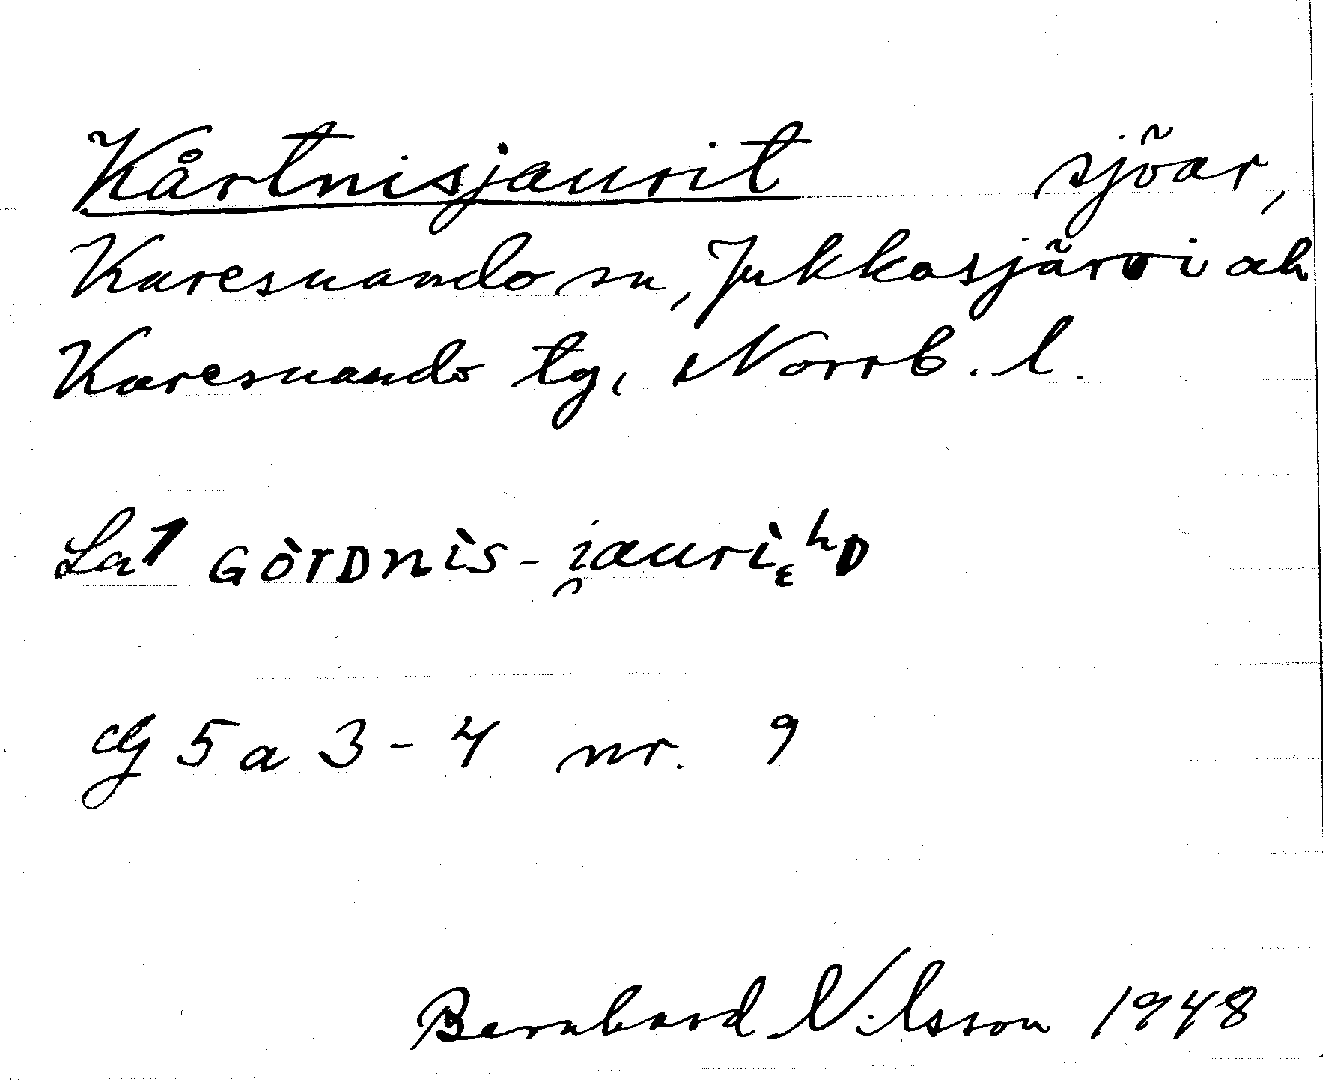 Kårtnisjaurit sjöar,
Karesuando sn, Jukkasjärvi och
Karesuando tg, Norrb. l.
La1 GÒRDNÌS-i̯aurìₑʰD
cg 5 a 3-4 nr. 9
Bernhard Nilsson 1948